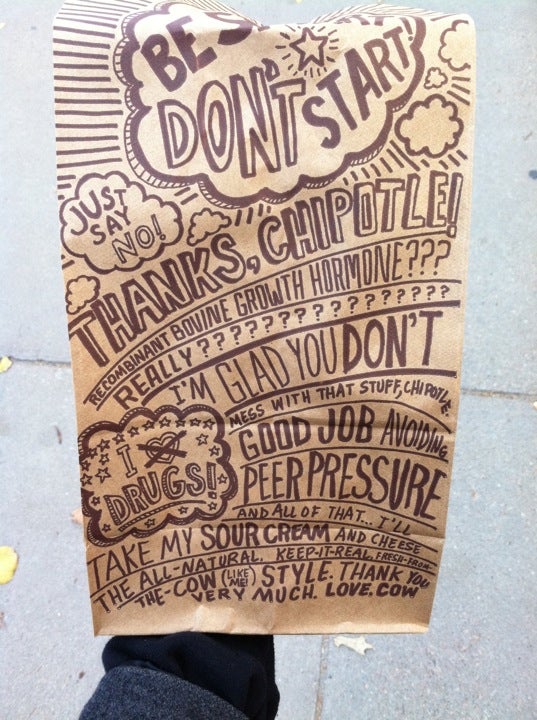 BE
DON'T START!
JUST
SAY
NO!
THANKS, CHIPOTLE!
RECOMBINANT BOVINE GROWTH HORMONE???
REALLY?????????????????
I'M GLAD YOU DON'T
MESS WITH THAT STUFF, CHIPOTLE.
I
DRUGS!
GOOD JOB AVOIDING
PEER PRESSURE
AND ALL OF THAT... I'LL
TAKE MY SOUR CREAM AND CHEESE
THE ALL-NATURAL, KEEP-IT-REAL, FRESH-FROM-
THE-COW (LIKE ME!) STYLE. THANK YOU
VERY MUCH. LOVE, COW